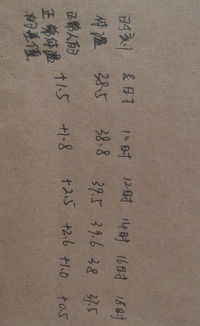 时刻 8时 10时 12时 14时 16时 18时
体温 38.5 38.8 39.5 39.6 38 37.5
正常人的正常体温的差值 +1.5 +1.8 +2.5 +2.6 +1.0 +0.5